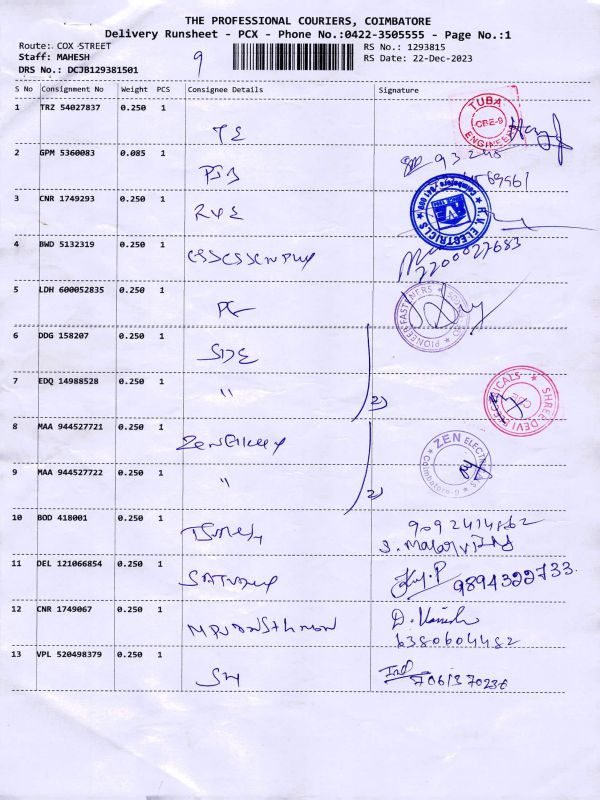 THE PROFESSIONAL COURIERS, COIMBATORE
Delivery Runsheet - PCX - Phone No.:0422-3505555 - Page No.:1
Route: COX STREET RS No.: 1293815
Staff: MAHESH 9 RS Date: 22-Dec-2023
DRS No.: DCJB129381501
S No Consignment No Weight PCS Consignee Details Signature
1 TRZ 54027837 0.250 1
TUBA CBE-9 ENGINEER
TE
2 GPM 5360083 0.085 1
3 CNR 1749293 0.250 1
H.V. ELECTRICLS Coimbatore 641 009
4 BWD 5132319 0.250 1
2200027683
5 LDH 600052835 0.250 1
PIONEER FASTENERS
PF
6 DDG 158207 0.250 1
SDE
7 EDQ 14988528 0.250 1
" 2)
SHREE DEVI CHEMICALS CBE
8 MAA 944527721 0.250 1
ZEN ELECTRICALS Coimbatore-9
9 MAA 944527722 0.250 1
" 2)
10 BOD 418001 0.250 1
9092414862
11 DEL 121066854 0.250 1
9894322733
12 CNR 1749067 0.250 1
6380604482
13 VPL 520498379 0.250 1
SH